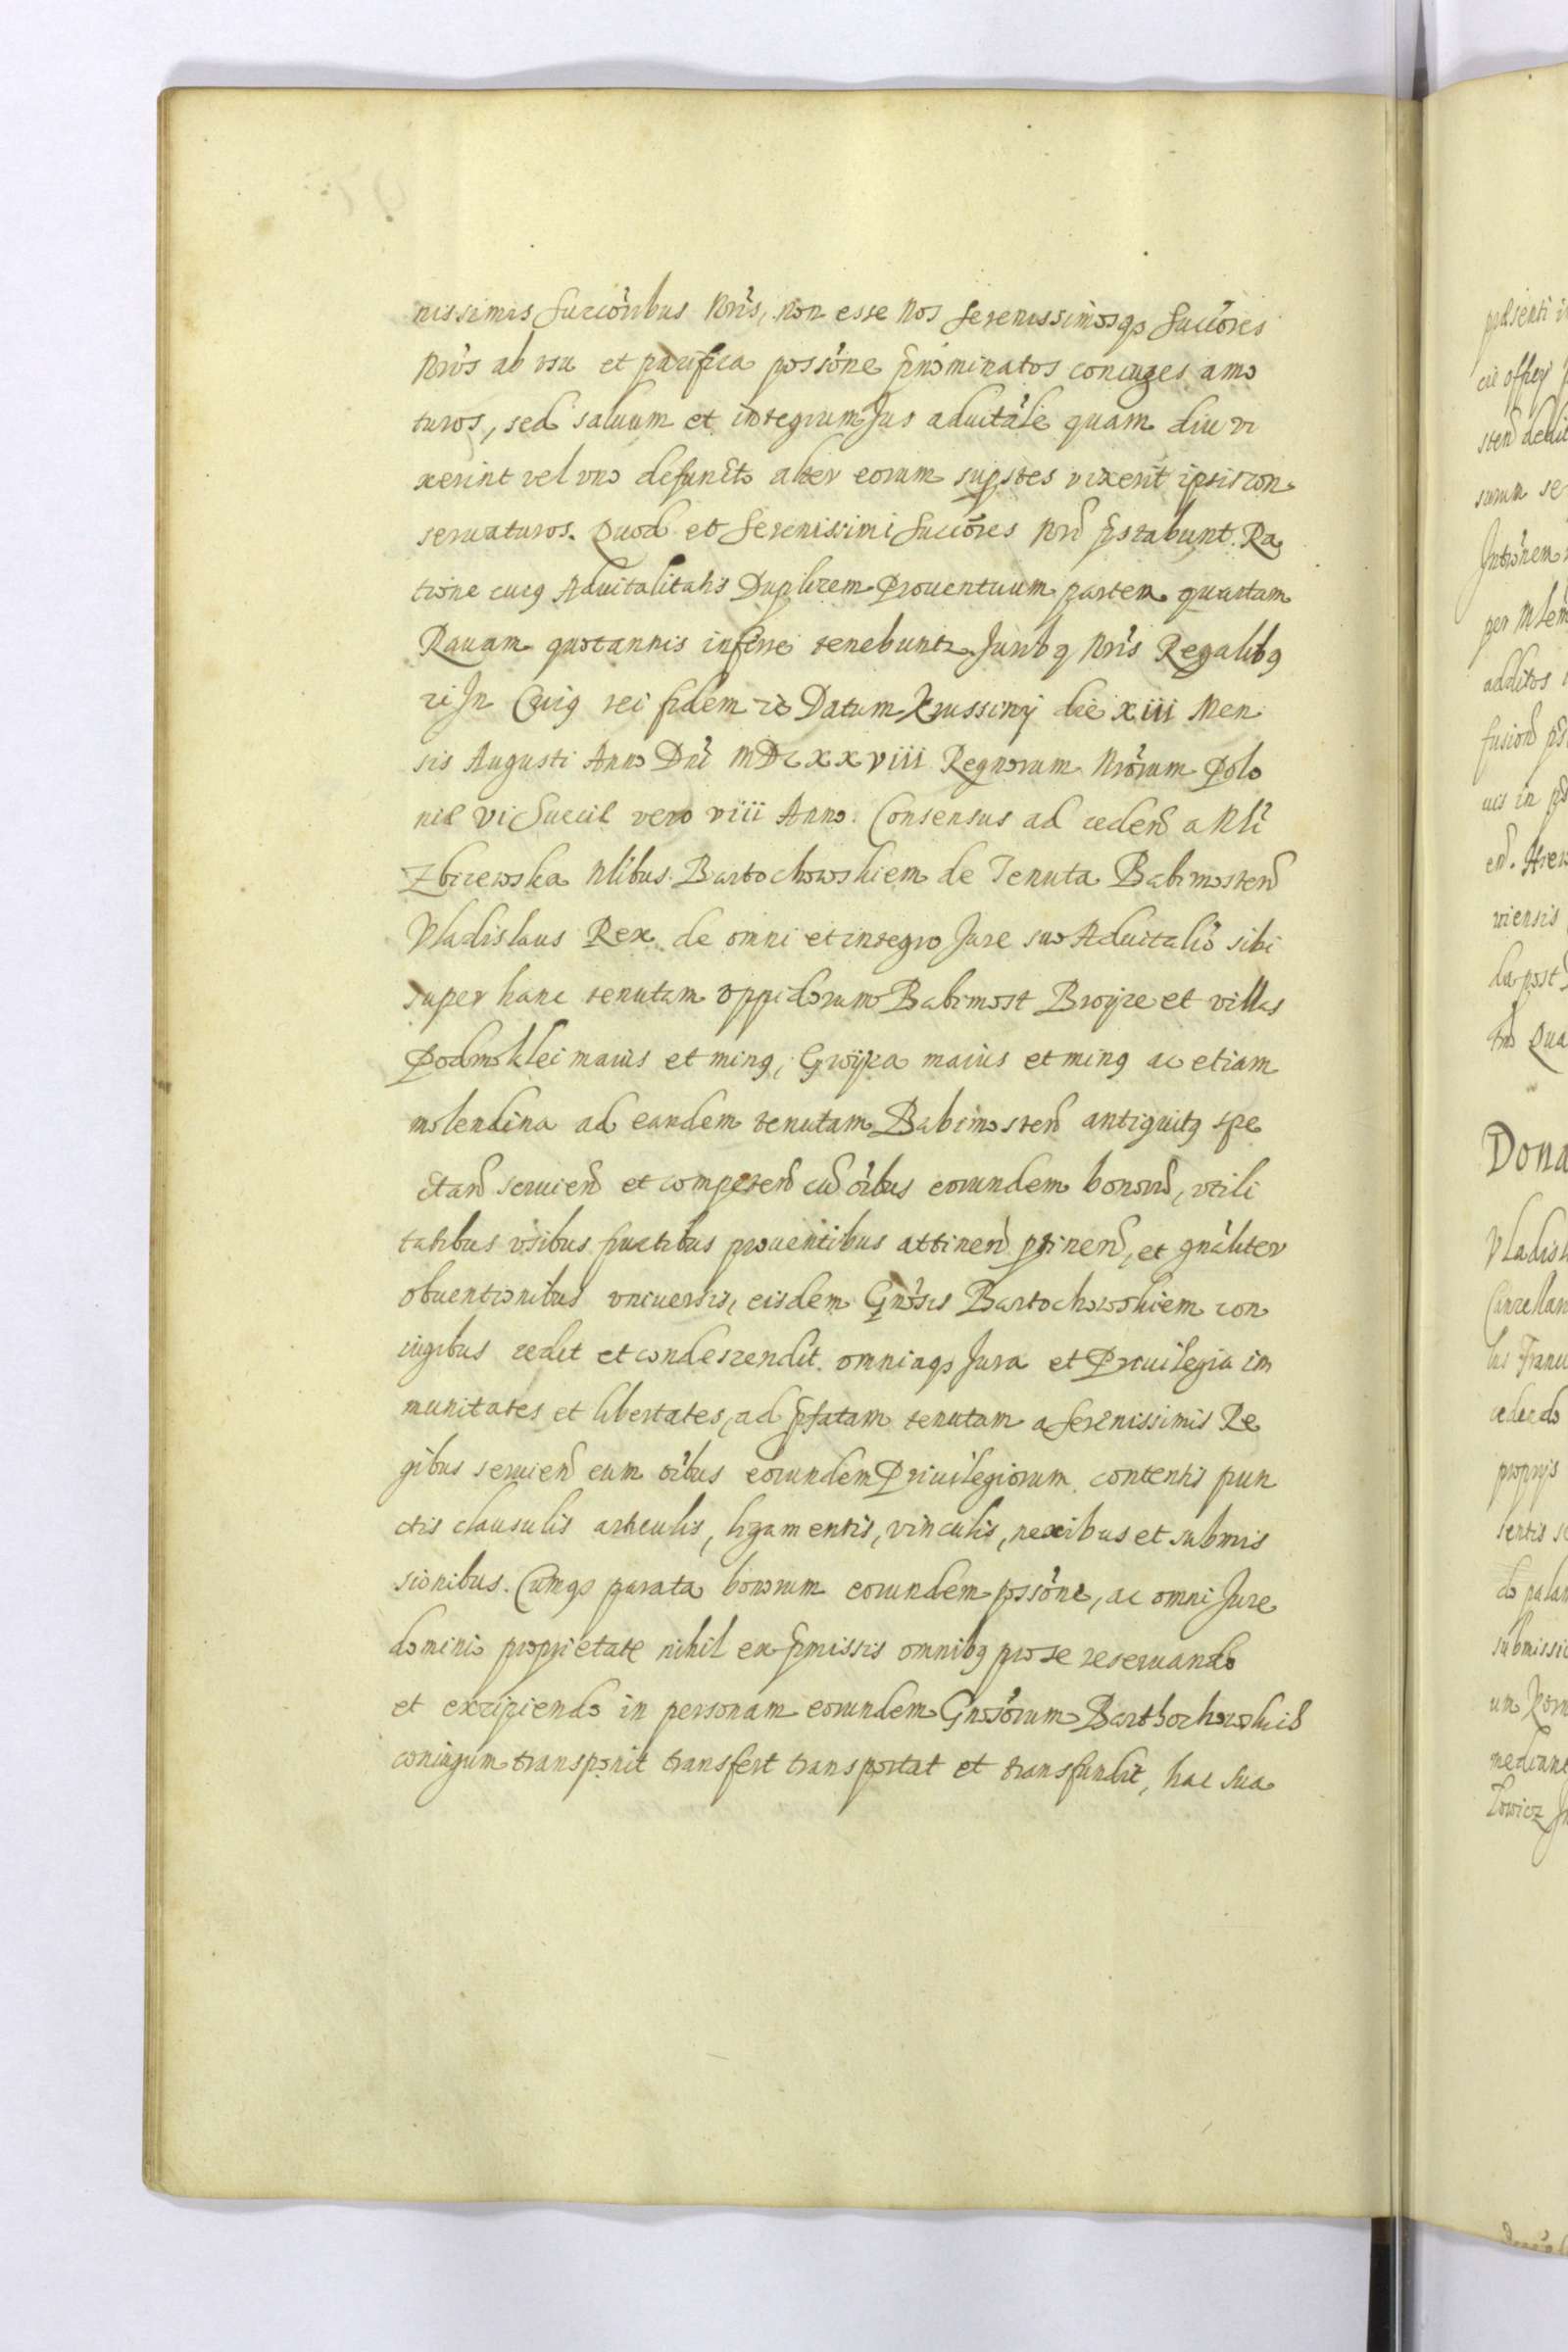 nissimis Succõribus Nrĩs, non esse Nos Serenissimosq3 Succõres
Nrõs ab vsu et pacifica possõne p̃nominatos coniuges amo
turos, sed saluum et integrum Jus aduitãle quam diu vi
xerint vel vno defuncto alter eorum supstes vixerit ipsis con
seruaturos. Quod et Serenissimi Succõres Nrĩ p̃stabunt. Ra
tione cuiq Aduitalitatis Duplicem Prouentuum partem quartam
Rauam quotannis inferre tenebuntr Juribq Nrĩs Regalibq
ec̃ In Cuiq rei fidem ec̃ Datum Krussinij die xiii Men
sis Augusti Anno Dnĩ MDCxxxviii Regnorum Nrõrum Polo
niæ Vi Sueciæ vero viii Anno. Consensus ad cedend̃ a Nlĩ
Zbirewska Nlĩbus Bartochowskiem de Tenuta Babimosten̄
Vladislaus Rex de omni et integro Jure suo Aduitaliõ sibi
super hanc tenutam oppidorum Babimost Broijce et villas
Podmoklei maius et minq, Groijca maius et minq ac etiam
molendina ad eandem tenutam Babimosten̄ antiquitq spe
ctan̄ seruien̄ et competen̄ cũ oĩbus eorundem bonorũ, vtili
tatibus vsibus fructibus prouentibus attinen̄ ptinen̄, et gnãliter
obuentionibus vniuersis, eisdem Gnõsis Bartochowskiem con
iugibus cedit et condescendit. omniaq3 Jura et Priuilegia im
munitates et libertates, ad p̃fatam tenutam a Serenissimis Re
gibus seruien̄ cum oĩbus eorundem Priuilegiorum contentis pun
ctis clausulis articulis, ligamentis, vinculis, nexibus et submis
sionibus. Cumq3 parata bonorum eorundem possõne, ac omni Jure
dominio proprietate nihil ex p̃missis omnibq pro se reseruando
et excipiendo in personam eorundem Gnosõrum Barthochowskich
coniugum transponit transfert transportat et transfundit, hac sua